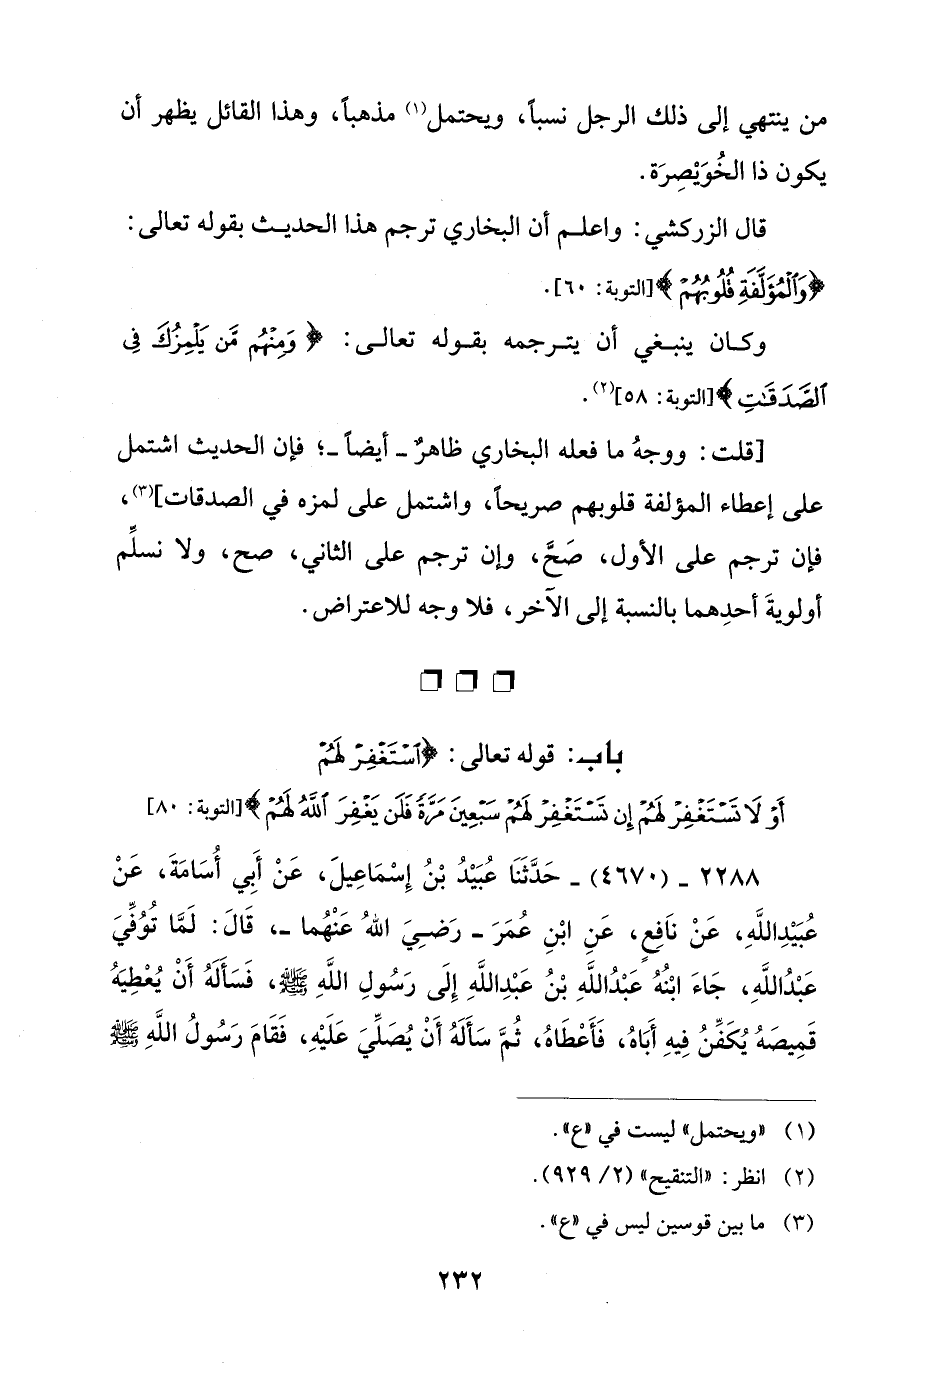 من ينتهي إلى ذلك الرجل نسباً، ويحتمل(١) مذهباً، وهذا القائل يظهر أن
يكون ذا الخُوَيْصِرَة.
قال الزركشي: واعلم أن البخاري ترجم هذا الحديث بقوله تعالى:
﴿وَٱلْمُؤَلَّفَةِ قُلُوبُهُمْ﴾[التوبة: ٦٠].
وكان ينبغي أن يترجمه بقوله تعالى: ﴿وَمِنْهُم مَّن يَلْمِزُكَ فِي
ٱلصَّدَقَٰتِ﴾[التوبة: ٥٨](٢).
[قلت: ووجهُ ما فعله البخاري ظاهرٌ ـ أيضاً ـ؛ فإن الحديث اشتمل
على إعطاء المؤلفة قلوبهم صريحاً، واشتمل على لمزه في الصدقات](٣)،
فإن ترجم على الأول، صَحَّ، وإن ترجم على الثاني، صح، ولا نسلِّم
أولويةَ أحدِهما بالنسبة إلى الآخر، فلا وجه للاعتراض.
باب: قوله تعالى: ﴿ٱسْتَغْفِرْ لَهُمْ
أَوْ لَا تَسْتَغْفِرْ لَهُمْ إِن تَسْتَغْفِرْ لَهُمْ سَبْعِينَ مَرَّةً فَلَن يَغْفِرَ ٱللَّهُ لَهُمْ﴾[التوبة: ٨٠]
٢٢٨٨ ـ (٤٦٧٠) ـ حَدَّثَنَا عُبَيْدُ بْنُ إِسْمَاعِيلَ، عَنْ أَبِي أُسَامَةَ، عَنْ
عُبَيْدِاللَّهِ، عَنْ نَافِعٍ، عَنِ ابْنِ عُمَرَ ـ رَضِيَ اللهُ عَنْهُما ـ، قَالَ: لَمَّا تُوُفِّيَ
عَبْدُاللَّهِ، جَاءَ ابْنُهُ عَبْدُاللَّهِ بْنُ عَبْدِاللَّهِ إِلَى رَسُولِ اللَّهِ ﷺ، فَسَأَلَهُ أَنْ يُعْطِيَهُ
قَمِيصَهُ يُكَفِّنُ فِيهِ أَبَاهُ، فَأَعْطَاهُ، ثُمَّ سَأَلَهُ أَنْ يُصَلِّيَ عَلَيْهِ، فَقَامَ رَسُولُ اللَّهِ ﷺ
(١) «ويحتمل» ليست في «ع».
(٢) انظر: «التنقيح» (٢/ ٩٢٩).
(٣) ما بين قوسين ليس في «ع».
٢٣٢